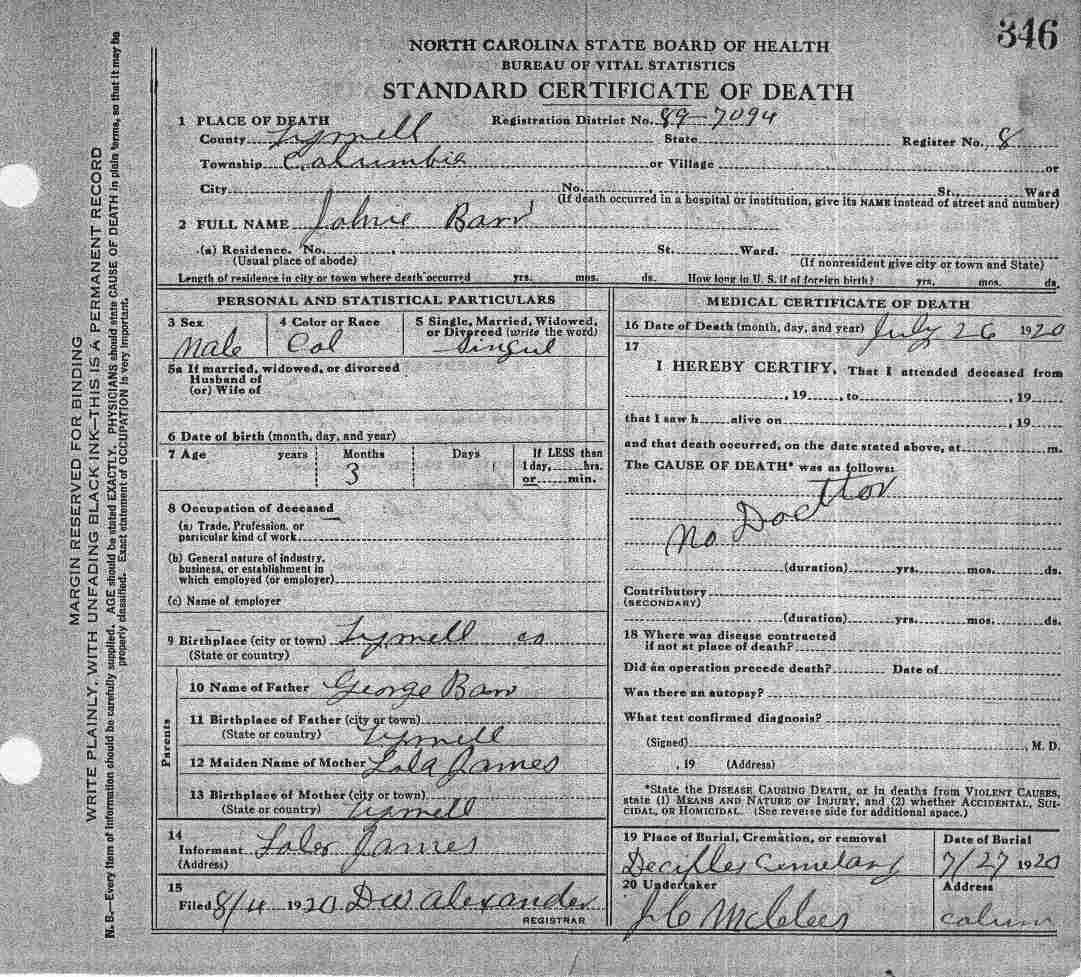 346
NORTH CAROLINA STATE BOARD OF HEALTH
BUREAU OF VITAL STATISTICS
STANDARD CERTIFICATE OF DEATH
1 PLACE OF DEATH Registration District No. 89-7094
County Tyrrell State Register No. 8
Township Columbia or Village or
City No. St., Ward
(If death occurred in a hospital or institution, give its NAME instead of street and number)
2 FULL NAME Johnie Barr
(a) Residence. No. St. Ward.
(Usual place of abode) (If nonresident give city or town and State)
Length of residence in city or town where death occurred yrs. mos. ds. How long in U. S. if of foreign birth? yrs. mos. ds.
PERSONAL AND STATISTICAL PARTICULARS
3 Sex 4 Color or Race 5 Single, Married, Widowed, or Divorced (write the word)
Male Col Singul
5a If married, widowed, or divorced
Husband of
(or) Wife of
6 Date of birth (month, day, and year)
7 Age years Months Days If LESS than
1 day, hrs.
3 or min.
8 Occupation of deceased
(a) Trade, Profession, or
particular kind of work
(b) General nature of industry,
business, or establishment in
which employed (or employer)
(c) Name of employer
9 Birthplace (city or town) Tyrrell co
(State or country)
Parents
10 Name of Father George Barr
11 Birthplace of Father (city or town)
(State or country) Tyrrell
12 Maiden Name of Mother Lola James
13 Birthplace of Mother (city or town)
(State or country) Tyrrell
14
Informant James
(Address)
15
Filed 8/4 1920 D W Alexander
REGISTRAR
MEDICAL CERTIFICATE OF DEATH
16 Date of Death (month, day, and year) July 26 1920
17
I HEREBY CERTIFY, That I attended deceased from
, 19 , to , 19
that I saw h alive on , 19
and that death occurred, on the date stated above, at m.
The CAUSE OF DEATH* was as follows:
No Docttor
(duration) yrs. mos. ds.
Contributory
(SECONDARY)
(duration) yrs. mos. ds.
18 Where was disease contracted
if not at place of death?
Did an operation precede death? Date of
Was there an autopsy?
What test confirmed diagnosis?
(Signed) , M. D.
, 19 (Address)
*State the DISEASE CAUSING DEATH, or in deaths from VIOLENT CAUSES,
state (1) MEANS AND NATURE OF INJURY, and (2) whether ACCIDENTAL, SUI-
CIDAL, OR HOMICIDAL. (See reverse side for additional space.)
19 Place of Burial, Cremation, or removal Date of Burial
Deciples 7/27 1920
20 Undertaker Address
J C McClees colum
MARGIN RESERVED FOR BINDING
WRITE PLAINLY, WITH UNFADING BLACK INK—THIS IS A PERMANENT RECORD
N. B.—Every item of information should be carefully supplied. AGE should be stated EXACTLY. PHYSICIANS should state CAUSE OF DEATH in plain terms, so that it may be
properly classified. Exact statement of OCCUPATION is very important.